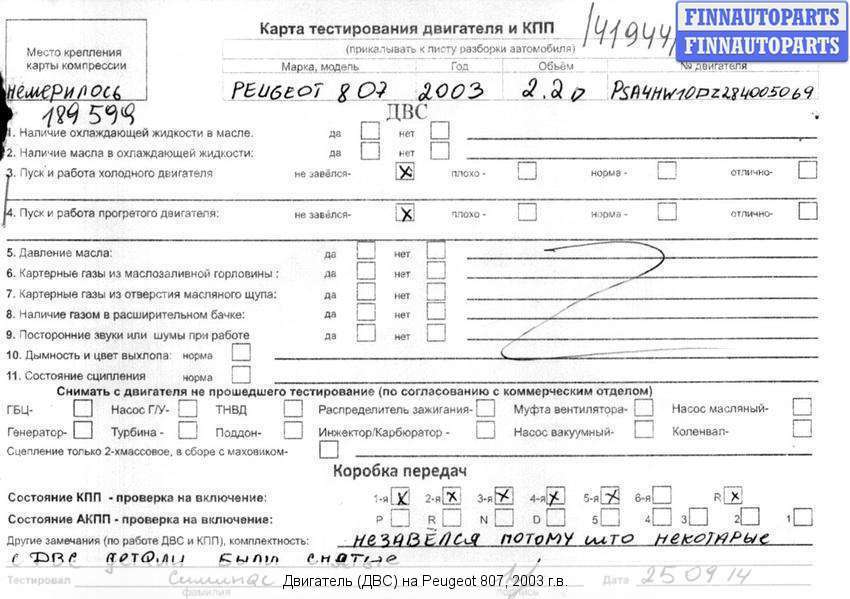 Карта тестирования двигателя и КПП
/41944/
FINNAUTOPARTS
FINNAUTOPARTS
(прикалывать к листу разборки автомобиля)
Место крепления
карты компрессии
Марка, модель Год Объём № двигателя
немерилось
PEUGEOT 807 2003 2.2D PSA4HW10DZ284005069
189599
ДВС
1. Наличие охлаждающей жидкости в масле. да нет
2. Наличие масла в охлаждающей жидкости: да нет
3. Пуск и работа холодного двигателя не завёлся- x плохо - норма - отлично-
4. Пуск и работа прогретого двигателя: не завёлся- x плохо - норма - отлично-
5. Давление масла: да нет
6. Картерные газы из маслозаливной горловины : да нет
7. Картерные газы из отверстия масляного щупа: да нет
8. Наличие газом в расширительном бачке: да нет
9. Посторонние звуки или шумы при работе да нет
10. Дымность и цвет выхлопа: норма
11. Состояние сципления норма
Снимать с двигателя не прошедшего тестирование (по согласованию с коммерческим отделом)
ГБЦ- Насос Г/У- ТНВД Распределитель зажигания- Муфта вентилятора- Насос масляный-
Генератор- Турбина - Поддон- Инжектор/Карбюратор - Насос вакуумный- Коленвал-
Сцепление только 2-хмассовое, в сборе с маховиком-
Коробка передач
Состояние КПП - проверка на включение: 1-я x 2-я x 3-я x 4-я x 5-я x 6-я R x
Состояние АКПП - проверка на включение: P R N D 5 4 3 2 1
Другие замечания (по работе ДВС и КПП), комплектность: НЕЗАВЕЛСЯ ПОТОМУ ШТО НЕКОТАРЫЕ
С ДВС ДЕТАЛИ БЫЛИ СНЯТЫЕ
Тестировал Симинас Двигатель (ДВС) на Peugeot 807, 2003 г.в. Дата 250914
фамилия подпись